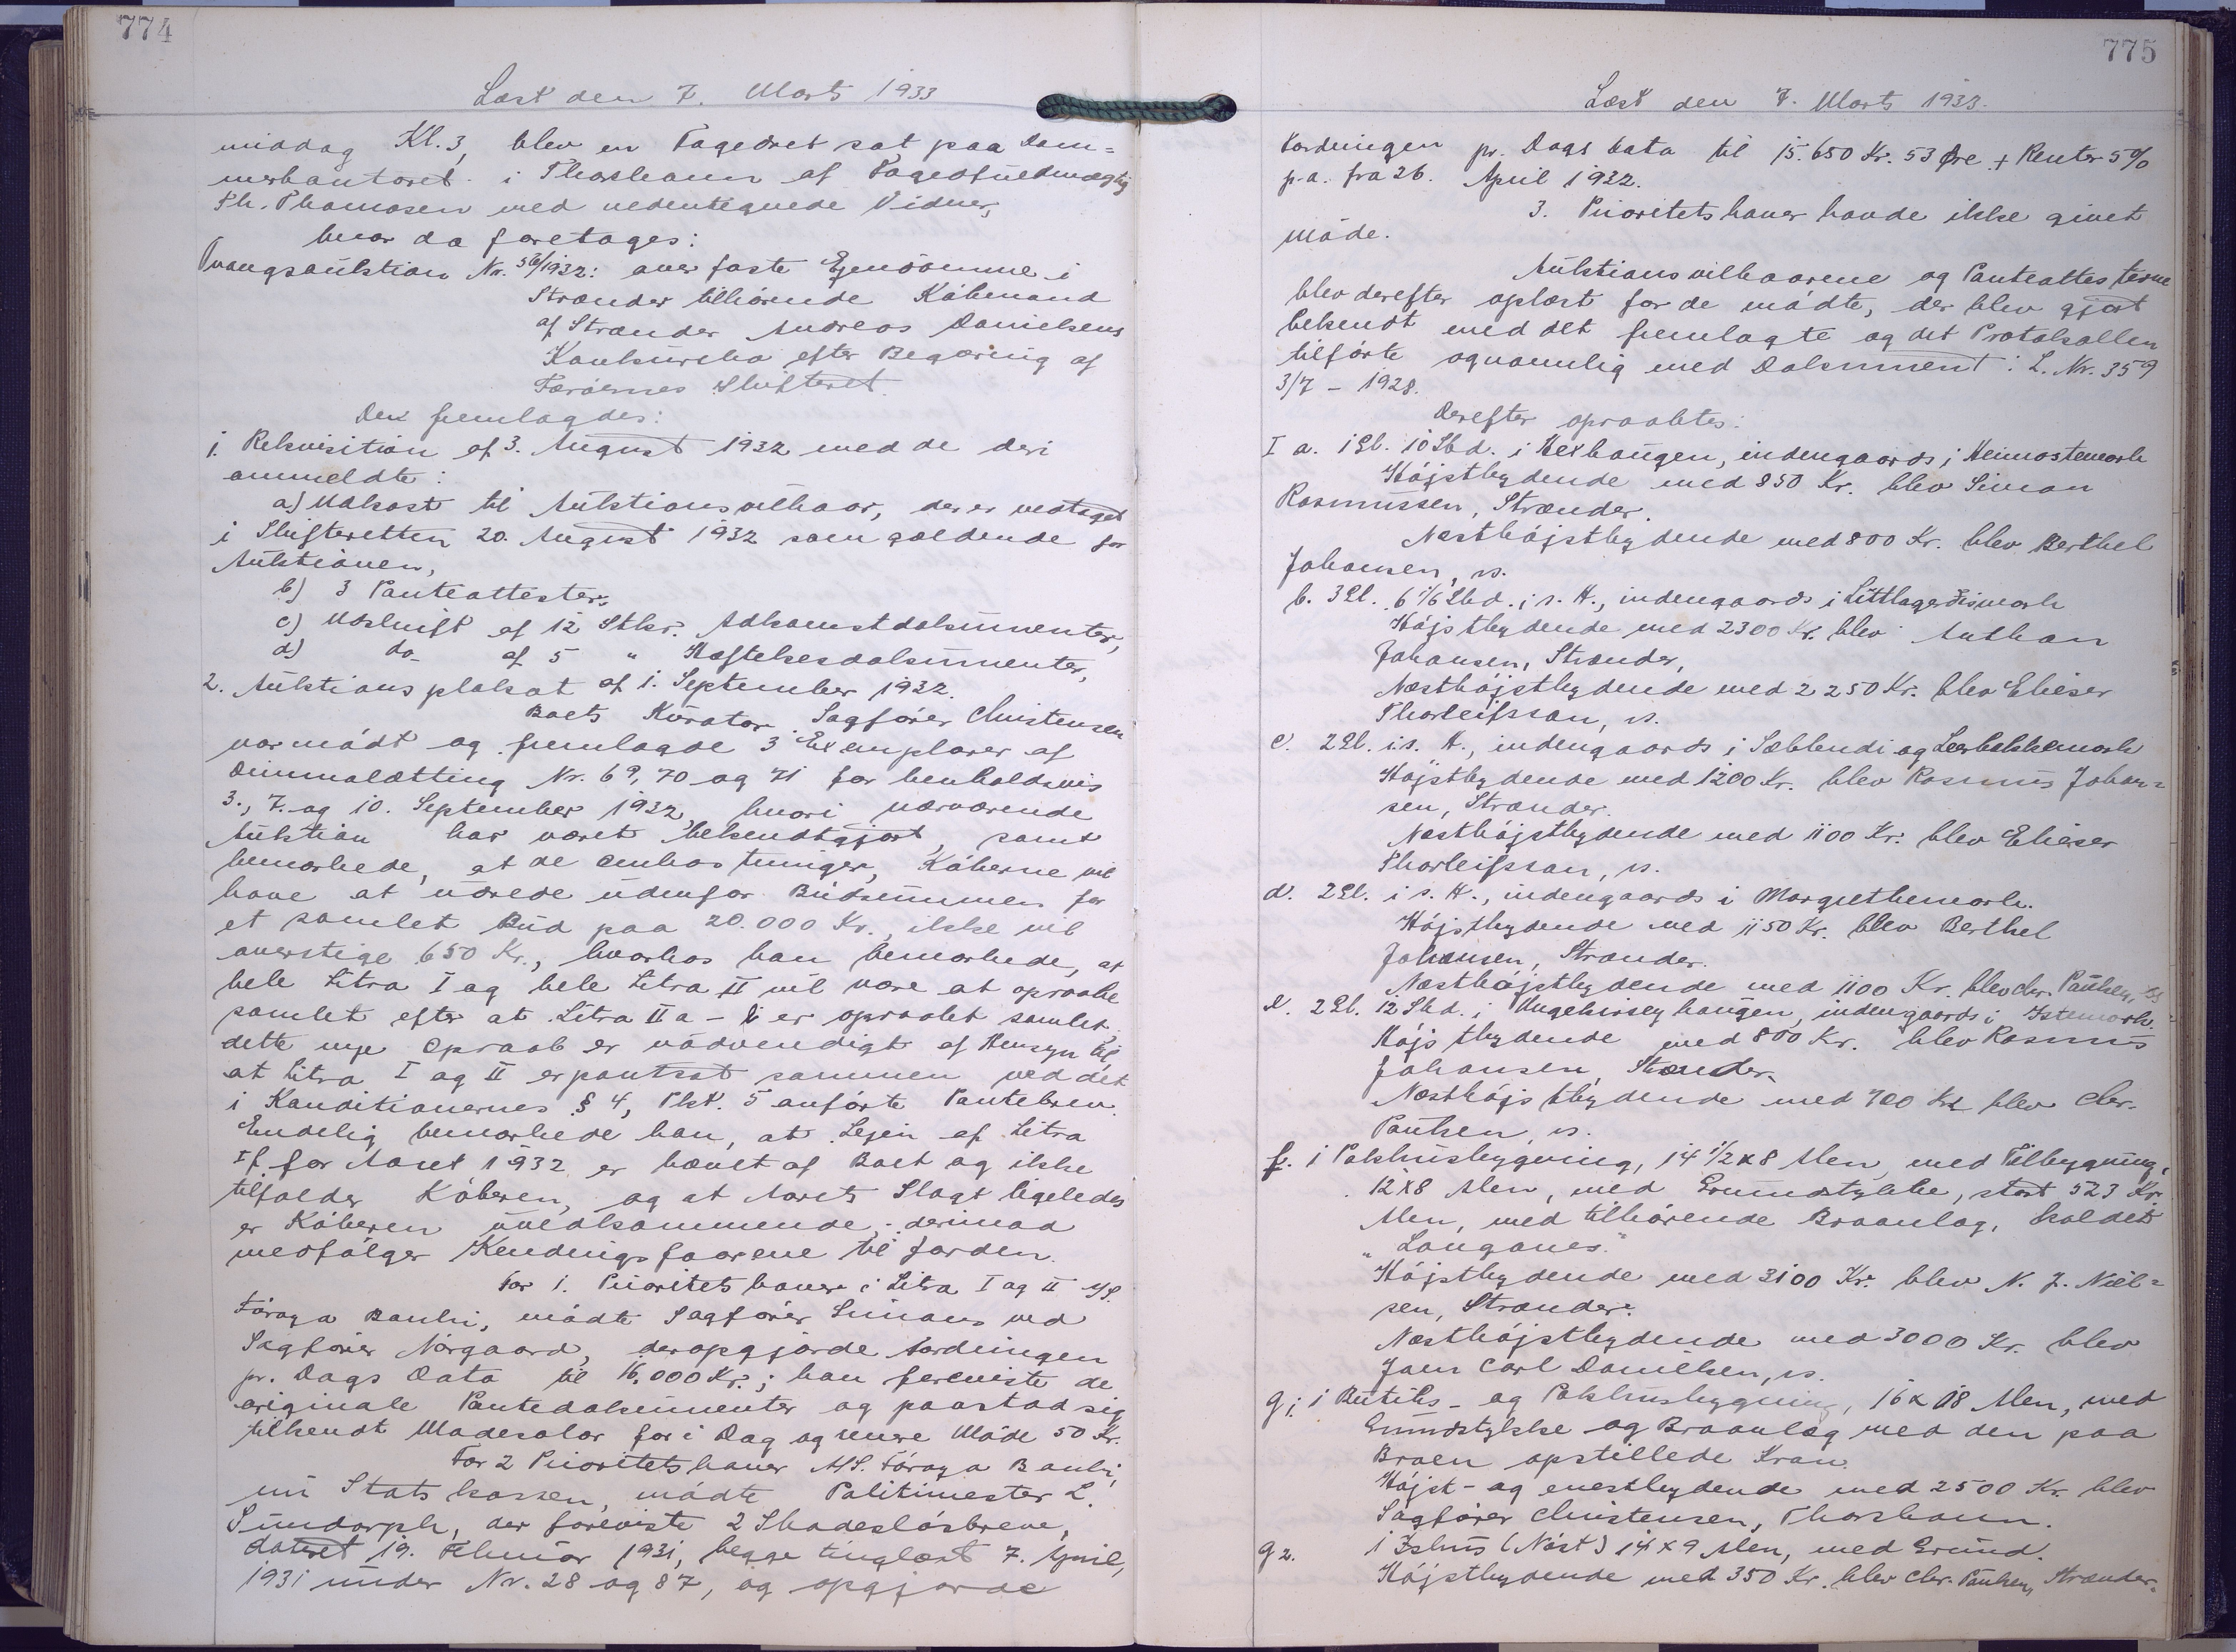 774
Læst den 7. Marts 1933
middag Kl. 3, blev en Fogedret sat paa Dom=
merkontoret i Thorshavn af Fogedfuldmægtig
Th. Thomasen med nedentegnede Vidner,
hvor da foretages:
Tvangsauktion Nr. 56/1932: over faste Ejendomme i
Strænder tilhörende Köbmand
af Strænder Andreas Danielsens
Konkursbo efter Begæring af
Færöernes Skifteret.
Der fremlagdes:
1. Rekvisition af 3. August 1932 med de deri
anmeldte:
a) Udkast til Auktionsvilkaar, der er vedtaget
i Skifteretten 20. August 1932 som gældende for
Auktionen,
b) 3 Panteattester,
c) Udskrift af 12 Stkr. Adkomstdokumenter,
d) do_ af 5 " Hæftelsesdokumenter,
2. Auktionsplakat af 1. September 1932.
Boets Kurator Sagförer Christensen
var mödt og fremlagde 3 Exemplarer af
Dimmalætting Nr. 69, 70 og 71 for henholdsvis
3., 7. og 10. September 1932, hvori nærværende
Auktion har været bekendtgjort, samt
bemærkede, at de Omkostninger, Köberne vil
have at udrede udenfor Budsummen for
et samlet Bud paa 20.000 Kr., ikke vil
overstige 650 Kr., hvorhos han bemærkede, at
hele Litra I og hele Litra II vil være at opraabe
samlet efter at Litra II a - i er opraabt samlet.
dette nye Opraab er nödvendigt af Hensyn til,
at Litra I og II er pantsat sammen ved det
i Konditionernes § 4, Pkt. 5 anförte Pantebrev.
Endelig bemærkede han, at Lejen af Litra
I f. for Aaret 1932 er hævet af Boet og ikke
tilfalder Köberen, og at Aarets Slagt ligeledes
er Köberen uvedkommende; derimod
medfölger Kendingsfaarene til Jorden.
For 1. Prioritetshaver i Litra I og II A/S.
Föroya Banki, mödte Sagförer Simons ved
Sagförer Nörgaard, der opgjorde Fordringen
pr. Dags Dato til 16.000 Kr.; han foreviste de
originale Pantedokumenter og paastod sig
tilkendt Mødesalær for i Dag og senere Möde 50 Kr.
For 2 Prioritetshaver A/S. Föroya Banki,
nu Statskassen, mödte Politimester L.
Sundorph, der foreviste 2 Skadeslösbreve,
dateret 19. Februar 1931, begge tinglæst 7. April,
1931 under Nr. 28 og 87, og opgjorde
775
Læst den 7. Marts 1933.
Fordringen pr. Dags Dato til 15.650 Kr. 53 Øre + Renter 5%
p.a. fra 26. April 1932.
3. Prioritetshaver havde ikke givet
Möde.
Auktionsvilkaarene og Panteattesterne
blev derefter oplæst for de mödte, der blev gjort
bekendt med det fremlagte og det Protokollen
tilförte og navnlig med Dokument: L. Nr. 359
3/7 - 1928.
Derefter opraabtes:
I a. 1 Gl. 10 Skd. i Hexhaugen, indengaards i Heimastemark
Höjstbydende med 850 Kr. blev Simon
Rasmussen, Strænder.
Næsthöjstbydende med 800 Kr. blev Berthel
Johansen, is.
b. 3 Gl. 6 1/6 Skd. i s. H., indengaards i Littlagerdismark
Höjstbydende med 2300 Kr. blev Anthon
Johansen, Strænder,
Næsthöjstbydende med 2250 Kr. blev Elieser
Thorleifsson, is.
c. 2 Gl. i s. H., indengaards i Sæblendi og
Höjstbydende med 1200 Kr. blev Rasmus Johan=
sen, Strænder.
Næsthöjstbydende med 1100 Kr. blev Elieser
Thorleifsson, is.
d. 2 Gl. i s. H., indengaards i Margrethemark.
Höjstbydende med 1150 Kr. blev Berthel
Johansen, Strænder.
Næsthöjstbydende med 1100 Kr. blev Chr. Paulsen, is
e. 2 Gl. 12 Skd. i haugen, indengaards i Istemark.
Höjstbydende med 800 Kr. blev Rasmus
Johansen, Strænder.
Næsthöjstbydende med 700 Kr. blev Chr.
Paulsen, is.
f. 1 Pakhusbygning, 14 1/2 x 8 Alen, med Tilbygning,
12 x 8 Alen, med Grundstykke, stort 523 Kv.
Alen, med tilhörende Broanlæg, kaldet
"Langanes."
Höjstbydende med 3100 Kr. blev N. J. Niel=
sen, Strænder.
Næsthöjstbydende med 3000 Kr. blev
Joen Carl Danielsen, is.
g 1. 1 Butiks- og Pakhusbygning, 16 x 18 Alen, med
Grundstykke og Broanlæg med den paa
Broen opstillede Kran.
Höjst- og enestbydende med 2500 Kr. blev
Sagförer Christensen, Thorshavn.
g 2. 1 Ishus (Nöst) 14 x 9 Alen, med Grund.
Höjstbydende med 350 Kr. blev Chr. Paulsen, Strænder.